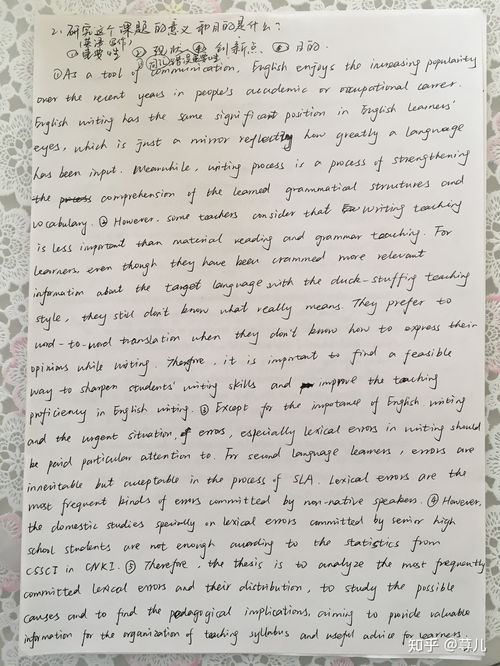 2. 研究这个课题的意义和目的是什么?
(英语写作)
①重要性 ②现状 ④创新点 ⑤目的.
③词汇错误重要性
①As a tool of communication, English enjoys the increasing popularity
over the recent years in people's academic or occupational career.
English writing has the same significant position in English learners'
eyes, which is just a mirror reflecting how greatly a language
has been input. Meanwhile, writing process is a process of strengthening
the comprehension of the learned grammatical strutures and
vocabulary. ② However, some teachers consider that writing teaching
is less important than material reading and grammar teaching. For
learners, even though they have been crammed more relevant
information about the target language with the duck-stuffing teaching
style, they still don't know what really means. They prefer to
word-to-word translation when they don't know how to express their
opinions while writing. Therefore, it is important to find a feasible
way to sharpen students' writing skills and improve the teaching
proficiency in English writing. ③ Except for the impotance of English writing
and the urgent situation of errors, especially lexical errors in writing should
be paid particular attention to. For second language learners, errors are
inevitable but acceptable in the process of SLA. Lexical errors are the
most frequent kinds of errors committed by non-native speakers. ④ However,
the domestic studies specially on lexical errors committed by senior high
school students are not enough according to the statistics from
CSSCI in CNKI. ⑤ Therefore, the thesis is to analyze the most frequently
committed lexical errors and their distribution, to study the possible
causes and to find the pedagogical implications, aiming to provide valuable
information for the organization of teaching syllabus and useful advice for learners
知乎 @荨儿